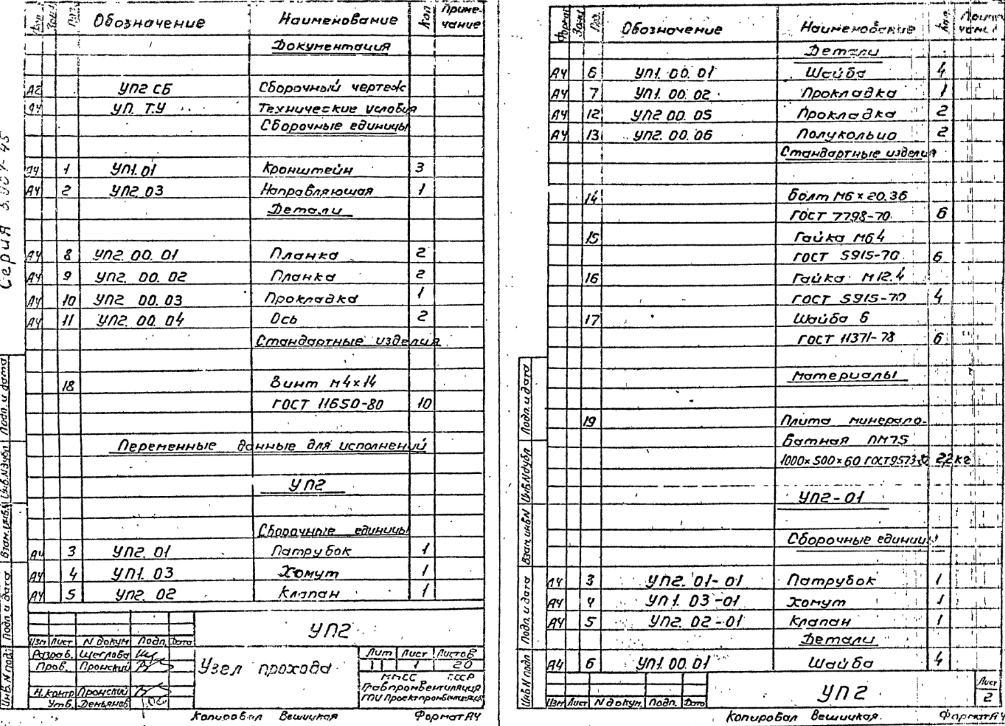 Серия 5.904-45
Поз. Обозначение Наименование Кол Приме-
чание
Документация
А2 УП2 СБ Сборочный чертеж
А4 УП. Т.У Технические условия
Сборочные единицы
А4 1 УП1.01 Кронштейн 3
А4 2 УП2.03 Направляющая 1
Детали
А4 8 УП2.00.01 Планка 2
А4 9 УП2.00.02 Планка 2
А4 10 УП2 00.03 Прокладка 1
А4 11 УП2.00.04 Ось 2
Стандартные изделия
18 Винт М4х14
ГОСТ 11650-80 10
Переменные данные для исполнений
УП2
Сборочные единицы
А4 3 УП2.01 Патрубок 1
А4 4 УП1.03 Хомут 1
А4 5 УП2.02 Клапан 1
Инв.N подл. Подп. и дата Взам.инв.N Инв.N дубл. Подп. и дата
УП2
Изм Лист N докум Подп. Дата
Разраб. Щеглова
Пров. Пронский
Н.контр Пронский
Утв. Демьянов
Узел прохода
Лит Лист Листов
1 20
ММСС СССР
Главпромвентиляция
ГПИ Проектпромвентиляция
Копировал Вешицкая Формат А4
Формат Зона Поз. Обозначение Наименование Кол. Приме-
чание
Детали
А4 6 УП1.00.01 Шайба 4
А4 7 УП1.00.02 Прокладка 1
А4 12 УП2 00.05 Прокладка 2
А4 13 УП2.00.06 Полукольцо 2
Стандартные изделия
14 Болт М6х20.36
ГОСТ 7798-70 6
15 Гайка М6.4
ГОСТ 5915-70 6
16 Гайка М12.4
ГОСТ 5915-70 4
17 Шайба 6
ГОСТ 11371-78 6
Материалы
19 Плита минерало-
ватная ПМ75
1000х500х60 ГОСТ9573-82 2,2 кг
УП2-01
Сборочные единицы
А4 3 УП2.01-01 Патрубок 1
А4 4 УП1.03-01 Хомут 1
А4 5 УП2.02-01 Клапан 1
Детали
А4 6 УП1.00.01 Шайба 4
Инв.N подл Подп. и дата Взам.инв.N Инв.N дубл Подп. и дата
Изм Лист N докум. Подп. Дата
УП2
Лист
2
Копировал Вешицкая Формат А4